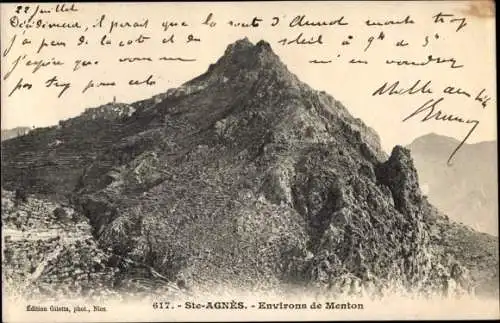 22 juillet
Décidément, il paraît que la route d'
monte trop
J'ai peur de la côte et du soleil à 9h du s.
j'espère que vous ne m'en voudrez
pas pour cela.
Mille amitiés
617. - Ste-AGNÈS. - Environs de Menton
Édition Giletta, phot., Nice.